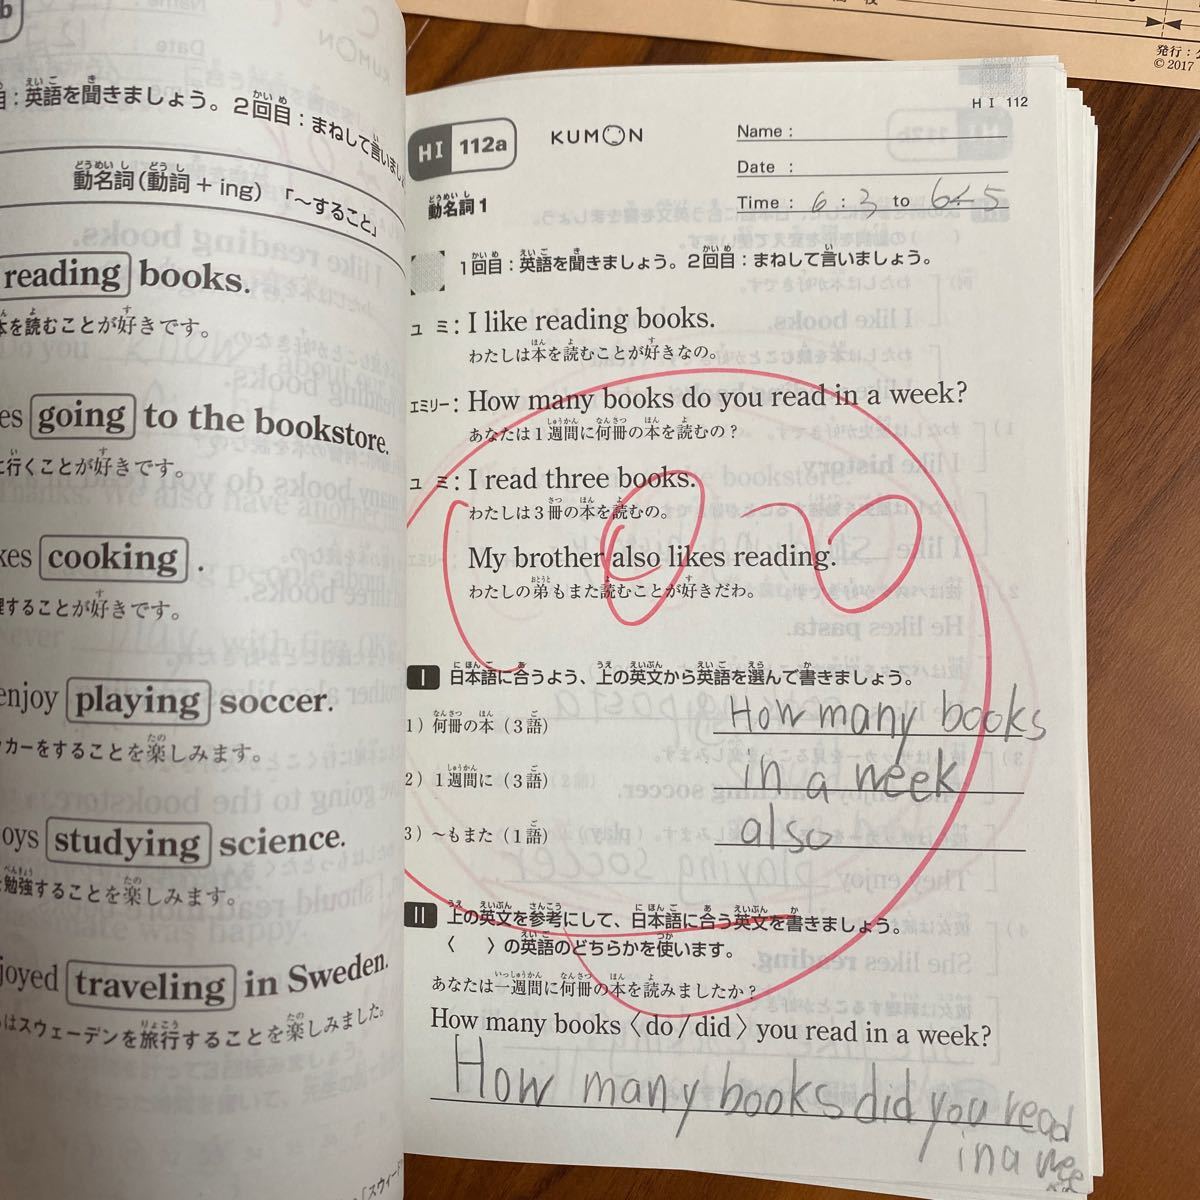 発行：
© 2017
b
：英語を聞きましょう。2回目：まねして言いましょ
動名詞（動詞＋ing）「～すること」
reading books.
本を読むことが好きです。
going to the bookstore.
に行くことが好きです。
kes cooking .
理することが好きです。
enjoy playing soccer.
ッカーをすることを楽しみます。
joys studying science.
勉強することを楽しみます。
joyed traveling in Sweden.
はスウェーデンを旅行することを楽しみました。
HI 112
HI 112a
KUMON
Name :
Date :
Time : 6 : 3 to
動名詞1
1回目：英語を聞きましょう。2回目：まねして言いましょう。
ユミ：I like reading books.
わたしは本を読むことが好きなの。
エミリー：How many books do you read in a week?
あなたは1週間に何冊の本を読むの？
ユミ：I read three books.
わたしは3冊の本を読むの。
My brother also likes reading.
わたしの弟もまた読むことが好きだわ。
I 日本語に合うよう、上の英文から英語を選んで書きましょう。
1）何冊の本（3語） How many books
2）1週間に（3語） in a week
3）～もまた（1語） also
II 上の英文を参考にして、日本語に合う英文を書きましょう。
〈 〉の英語のどちらかを使います。
あなたは一週間に何冊の本を読みましたか？
How many books〈do / did〉you read in a week?
How many books did you read
in a wee